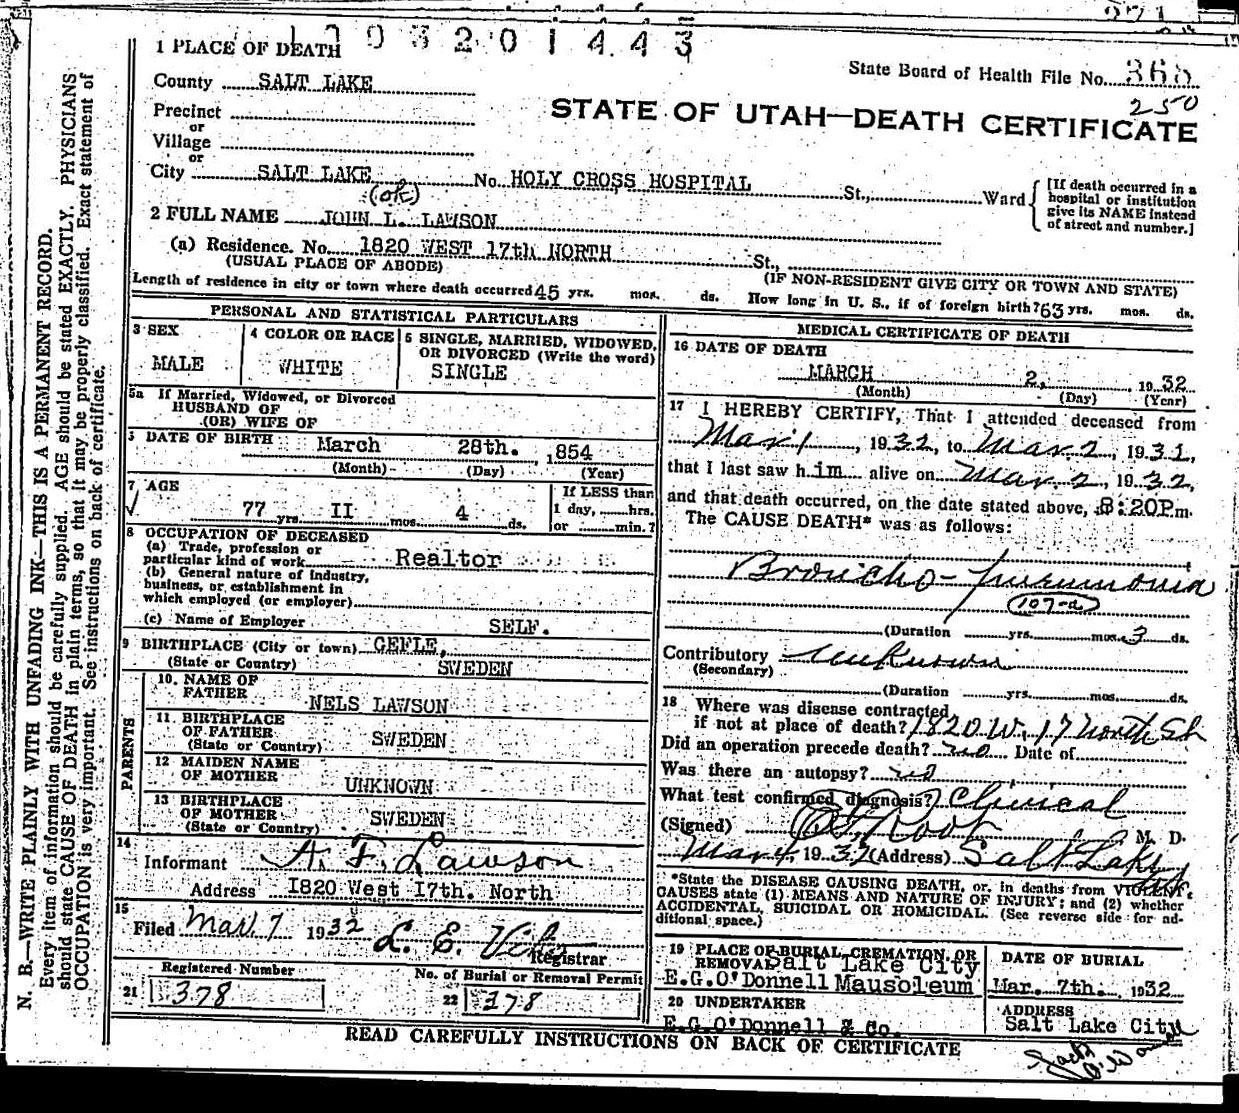 1 PLACE OF DEATH
1 9 3 2 0 1 4 4 3
State Board of Health File No. 365
250
County SALT LAKE
STATE OF UTAH—DEATH CERTIFICATE
Precinct
or
Village
or
City SALT LAKE No. HOLY CROSS HOSPITAL St., Ward
[If death occurred in a
hospital or institution
give its NAME instead
of street and number.]
(ok)
2 FULL NAME JOHN L. LAWSON
(a) Residence. No. 1820 WEST 17th NORTH St.,
(USUAL PLACE OF ABODE) (IF NON-RESIDENT GIVE CITY OR TOWN AND STATE)
Length of residence in city or town where death occurred 45 yrs. mos. ds. How long in U. S., if of foreign birth? 63 yrs. mos. ds.
PERSONAL AND STATISTICAL PARTICULARS
3 SEX
MALE
4 COLOR OR RACE
WHITE
5 SINGLE, MARRIED, WIDOWED,
OR DIVORCED (Write the word)
SINGLE
5a If Married, Widowed, or Divorced
HUSBAND OF
(OR) WIFE OF
DATE OF BIRTH March 28th. 1854
(Month) (Day) (Year)
7 AGE
77 yrs. II mos. 4 ds.
If LESS than
1 day, hrs.
or min.?
8 OCCUPATION OF DECEASED
(a) Trade, profession or
particular kind of work Realtor
(b) General nature of industry,
business, or establishment in
which employed (or employer)
(c) Name of Employer SELF.
9 BIRTHPLACE (City or town) GEFLE,
(State or Country) SWEDEN
PARENTS
10. NAME OF
FATHER NELS LAWSON
11. BIRTHPLACE
OF FATHER
(State or Country) SWEDEN
12 MAIDEN NAME
OF MOTHER UNKNOWN
13 BIRTHPLACE
OF MOTHER
(State or Country) SWEDEN
14
Informant A. F. Lawson
Address I820 West I7th. North
15
Filed Mar. 7 1932 L. E.
Registrar
Registered Number
21 378
No. of Burial or Removal Permit
22 378
MEDICAL CERTIFICATE OF DEATH
16 DATE OF DEATH
MARCH 2, 1932
(Month) (Day) (Year)
17 I HEREBY CERTIFY, That I attended deceased from
Mar 1, 1932, to Mar 2, 1931,
that I last saw him alive on Mar 2, 1932,
and that death occurred, on the date stated above, 8:20P.m.
The CAUSE DEATH* was as follows:
Broncho-Pneumonia
107-a
(Duration yrs. mos. 3 ds.
Contributory unknown
(Secondary)
(Duration yrs. mos. ds.
18 Where was disease contracted
if not at place of death? 1820 W. 17 North St
Did an operation precede death? no Date of
Was there an autopsy? no
What test confirmed diagnosis? Clinical
(Signed) Root M. D.
Mar 4, 1932 (Address) Salt Lake
*State the DISEASE CAUSING DEATH, or, in deaths from VIOLENT
CAUSES state (1) MEANS AND NATURE OF INJURY; and (2) whether
ACCIDENTAL, SUICIDAL OR HOMICIDAL. (See reverse side for ad-
ditional space.)
19 PLACE OF BURIAL, CREMATION, OR
REMOVAL Salt Lake City
E.G.O'Donnell Mausoleum
DATE OF BURIAL
Mar. 7th. 1932
20 UNDERTAKER
E.G.O'Donnell & Co.
ADDRESS
Salt Lake City
READ CAREFULLY INSTRUCTIONS ON BACK OF CERTIFICATE
N. B.—WRITE PLAINLY WITH UNFADING INK—THIS IS A PERMANENT RECORD.
Every item of information should be carefully supplied. AGE should be stated EXACTLY. PHYSICIANS
should state CAUSE OF DEATH in plain terms, so that it may be properly classified. Exact statement of
OCCUPATION is very important. See instructions on back of certificate.